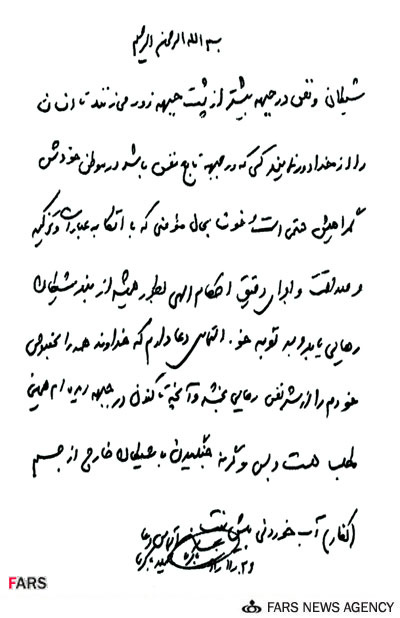 بسم الله الرحمن الرحیم
شیطان و نفس در جبهه بیشتر از پشت جبهه زور می‌زنند تا انسان
را از خدا دور نمایند کسی که در جبهه تابع نفس باشد در موطن خودش
گمراهیش حتمی است و خوشا بحال مؤمنی که با اتکا به عبادات و تزکیه
و صداقت و اجرای دقیق احکام الهی بطور همیشه از بند شیطان
رهایی یابد و به توبه التماس دعا دارم که خداوند همه را بخصوص
خودم را از شر نفس رهایی بخشد و آنچه تا کنون در جبهه دیده‌ام همین
مطلب است و بس وگرنه جنگیدن با شیطان خارج از جسم
(کفار) آب خوردنی بیش نیست
التماس دعا
FARS
FARS NEWS AGENCY